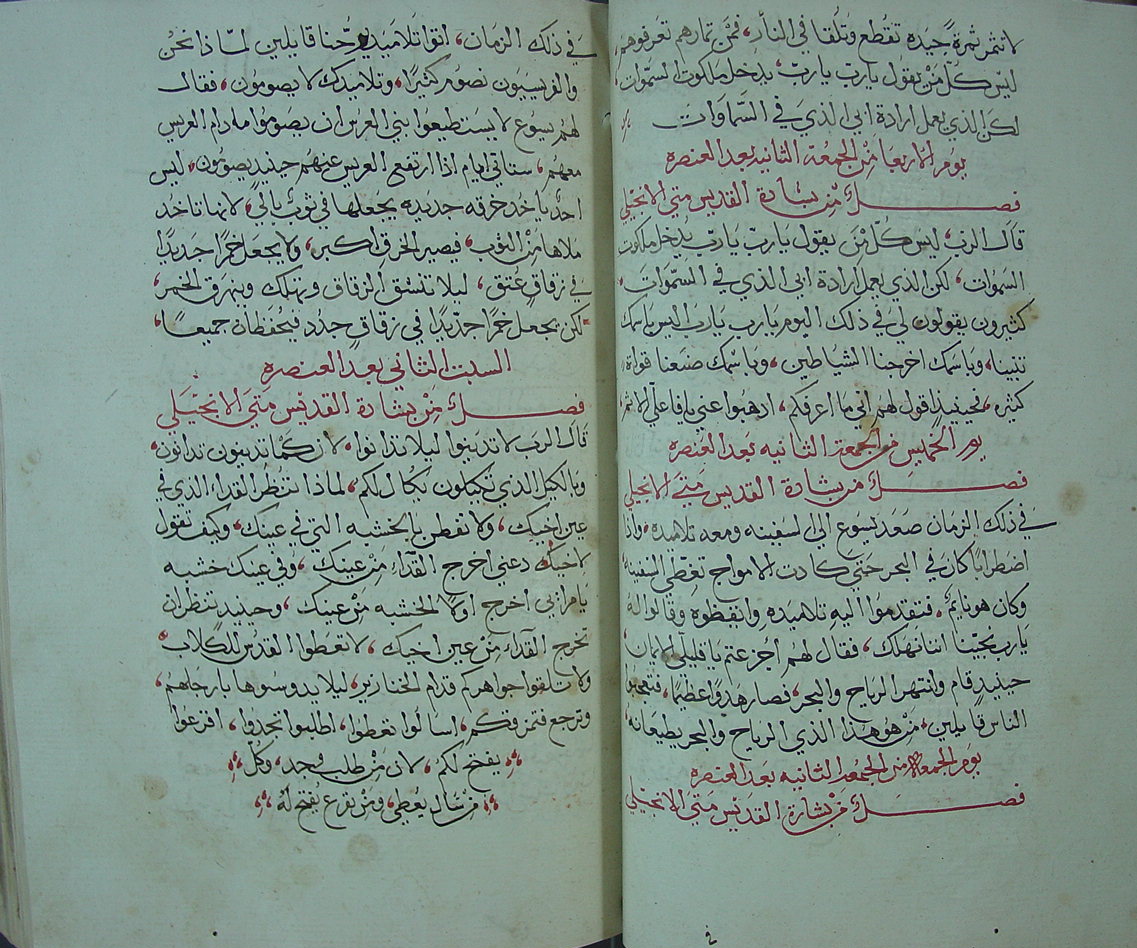 لا تثمر ثمرة جيده تقطع وتلقا في النار، فمن ثمارهم تعرفوهم
ليس كل من يقول يارب يارب، يدخل ملكوت السموات
لكن الذي يعمل ارادة ابي الذي في السماوات
يوم الاربعا من الجمعة الثانيه بعد العنصره
فصل من بشارة القديس متي الانجيلي
قال الرب، ليس كل من يقول يارب يارب يدخل ملكوت
السموات، لكن الذي يعمل ارادة ابي الذي في السموات،
كثيرون يقولون لي في ذلك اليوم يارب يارب اليس باسمك
تنبينا، وباسمك اخرجنا الشياطين، وباسمك صنعنا قواة
كثيره، فحينيذ اقول لهم اني ما اعرفكم، ادهبوا عني يا فاعلي الاثم
يوم الخميس من الجمعة الثانيه بعد العنصره
فصل من بشارة القديس متي الانجيلي
في ذلك الزمان صعد يسوع الي السفينه ومعه تلاميده، واذا
اضطرابا كان في البحر حتي كادت الامواج تغطي السفينه
وكان هو نايم، فتقدموا اليه تلاميده وايقظوه وقالوا له
يارب نجينا اننا نهلك، فقال لهم اجزعتم يا قليلي الايمان
حينيذ قام وانتهر الرياح والبحر، فصار هدوا عظيما، فتعجبوا
الناس قايلين، من هو هذا الذي الرياح والبحر يطيعانه
يوم الجمعة من الجمعة الثانيه بعد العنصره
فصل من بشارة القديس متي الانجيلي
في ذلك الزمان، اتوا تلاميد يوحنا قايلين لماذا نحن
والفريسيون نصوم كثيرا، وتلاميدك لا يصومون، فقال
لهم يسوع لا يستطيعوا بني العرس ان يصوموا ما دام العريس
معهم، ستاتي ايام اذا ارتفع العريس عنهم حينيد يصومون، ليس
احد ياخد خرقه جديده يجعلها في ثوب بالي، لانها تاخد
ملاها من الثوب، فيصير الخرق اكبر، ولا يجعل خمرا جديدا
في زقاق عتق، ليلا تنشق الزقاق وتهلك وينهرق الخمر،
لكن يجعل خمرا جديدا في زقاق جدد فيحفظان جميعا،
السبت الثاني بعد العنصره
فصل من بشارة القديس متي الانجيلي
قال الرب لا تدينوا ليلا تدانوا، لان كما تدينون تدانون
وبالكيل الذي تكيلون يكال لكم، لماذا تنظر القداء الذي في
عين اخيك، ولا تفطن بالخشبه التي في عينك، وكيف تقول
لاخيك دعني اخرج القداء من عينك، وفي عينك خشبه
يا مرايي اخرج اولا الخشبه من عينك، وحينيد تنظر ان
تخرج القداء من عين اخيك، لا تعطوا القدس للكلاب
ولا تلقوا جواهركم قدام الخنازير، ليلا يدوسوها بارجلهم،
وترجع فتمزقكم، اسالوا تعطوا، اطلبوا تجدوا، اقرعوا
يفتح لكم، لان من طلب وجد، وكل
من سال يعطي، ومن يقرع يفتح له